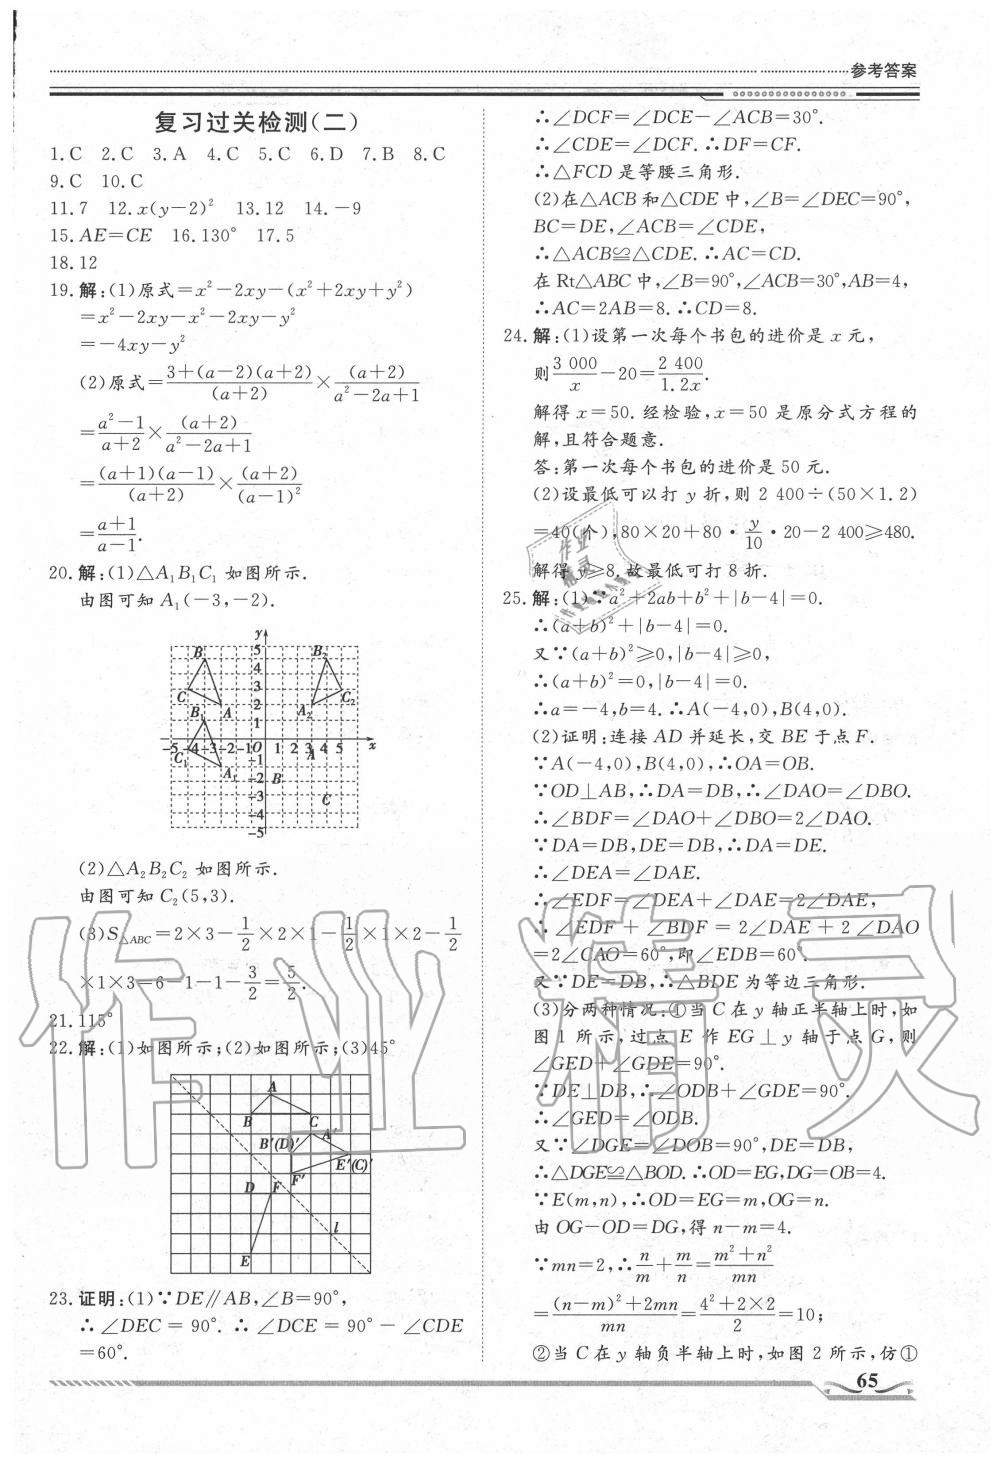 参考答案
复习过关检测(二)
1.C 2.C 3.A 4.C 5.C 6.D 7.B 8.C
9.C 10.C
11.7 12.x(y-2)² 13.12 14.-9
15.AE=CE 16.130° 17.5
18.12
19.解:(1)原式=x²-2xy-(x²+2xy+y²)
=x²-2xy-x²-2xy-y²
=-4xy-y²
(2)原式=3+(a-2)(a+2)/(a+2)×(a+2)/a²-2a+1
=a²-1/a+2×(a+2)/a²-2a+1
=(a+1)(a-1)/(a+2)×(a+2)/(a-1)²
=a+1/a-1.
20.解:(1)△A₁B₁C₁ 如图所示.
由图可知 A₁(-3,-2).
(2)△A₂B₂C₂ 如图所示.
由图可知 C₂(5,3).
(3)S△ABC=2×3-1/2×2×1-1/2×1×2-1/2
×1×3=6-1-1-3/2=5/2.
21.115°
22.解:(1)如图所示;(2)如图所示;(3)45°
23.证明:(1)∵DE∥AB,∠B=90°,
∴∠DEC=90°.∴∠DCE=90°-∠CDE
=60°.
∴∠DCF=∠DCE-∠ACB=30°.
∴∠CDE=∠DCF.∴DF=CF.
∴△FCD 是等腰三角形.
(2)在△ACB 和△CDE 中,∠B=∠DEC=90°,
BC=DE,∠ACB=∠CDE,
∴△ACB≌△CDE.∴AC=CD.
在 Rt△ABC 中,∠B=90°,∠ACB=30°,AB=4,
∴AC=2AB=8.∴CD=8.
24.解:(1)设第一次每个书包的进价是 x 元,
则3 000/x-20=2 400/1.2x.
解得 x=50.经检验,x=50 是原分式方程的
解,且符合题意.
答:第一次每个书包的进价是 50 元.
(2)设最低可以打 y 折,则 2 400÷(50×1.2)
=40(个),80×20+80·y/10·20-2 400≥480.
解得 y≥8.故最低可打 8 折.
25.解:(1)∵a²+2ab+b²+|b-4|=0.
∴(a+b)²+|b-4|=0.
又∵(a+b)²≥0,|b-4|≥0,
∴(a+b)²=0,|b-4|=0.
∴a=-4,b=4.∴A(-4,0),B(4,0).
(2)证明:连接 AD 并延长,交 BE 于点 F.
∵A(-4,0),B(4,0),∴OA=OB.
∵OD⊥AB,∴DA=DB,∴∠DAO=∠DBO.
∴∠BDF=∠DAO+∠DBO=2∠DAO.
∵DA=DB,DE=DB,∴DA=DE.
∴∠DEA=∠DAE.
∴∠EDF=∠DEA+∠DAE=2∠DAE,
∴∠EDF+∠BDF=2∠DAE+2∠DAO
=2∠CAO=60°,即∠EDB=60°.
又∵DE=DB,∴△BDE 为等边三角形.
(3)分两种情况:①当 C 在 y 轴正半轴上时,如
图 1 所示,过点 E 作 EG⊥y 轴于点 G,则
∠GED+∠GDE=90°.
∵DE⊥DB,∴∠ODB+∠GDE=90°.
∴∠GED=∠ODB.
又∵∠DGE=∠DOB=90°,DE=DB,
∴△DGE≌△BOD.∴OD=EG,DG=OB=4.
∵E(m,n),∴OD=EG=m,OG=n.
由 OG-OD=DG,得 n-m=4.
∵mn=2,∴n/m+m/n=m²+n²/mn
=(n-m)²+2mn/mn=4²+2×2/2=10;
②当 C 在 y 轴负半轴上时,如图 2 所示,仿①
65
作业精灵